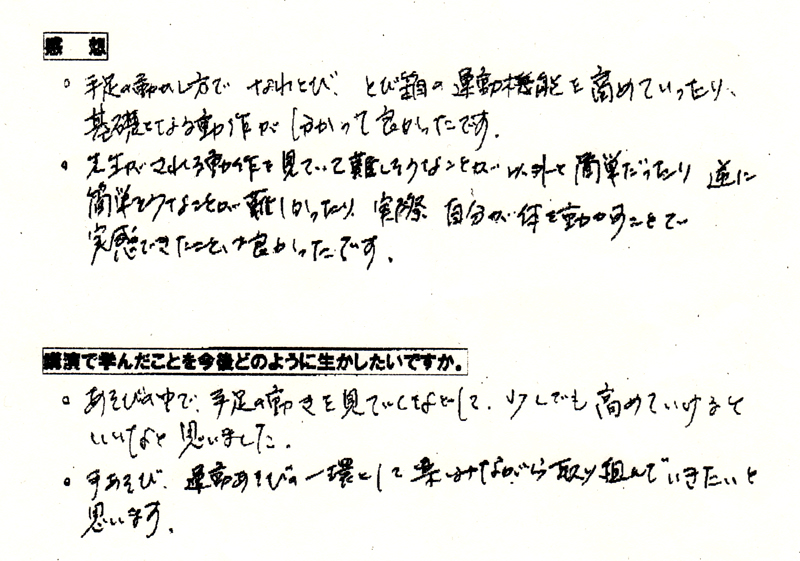 感想
○ 手足の動かし方で なわとび、とび箱の運動機能を高めていったり、
基礎となる動作が分かって良かったです。
○ 先生がされる動作を見ていて難しそうなことが以外と簡単だったり 逆に
簡単そうなことが難しかったり、実際 自分が体を動かすことで
実感できたことが良かったです。
講演で学んだことを今後どのように生かしたいですか。
○ あそびの中で、手足の動きを見ていくなどして、少しでも高めていけると
いいなと思いました。
○ 手あそび、運動あそびの一環として楽しみながら取り組んでいきたいと
思います。